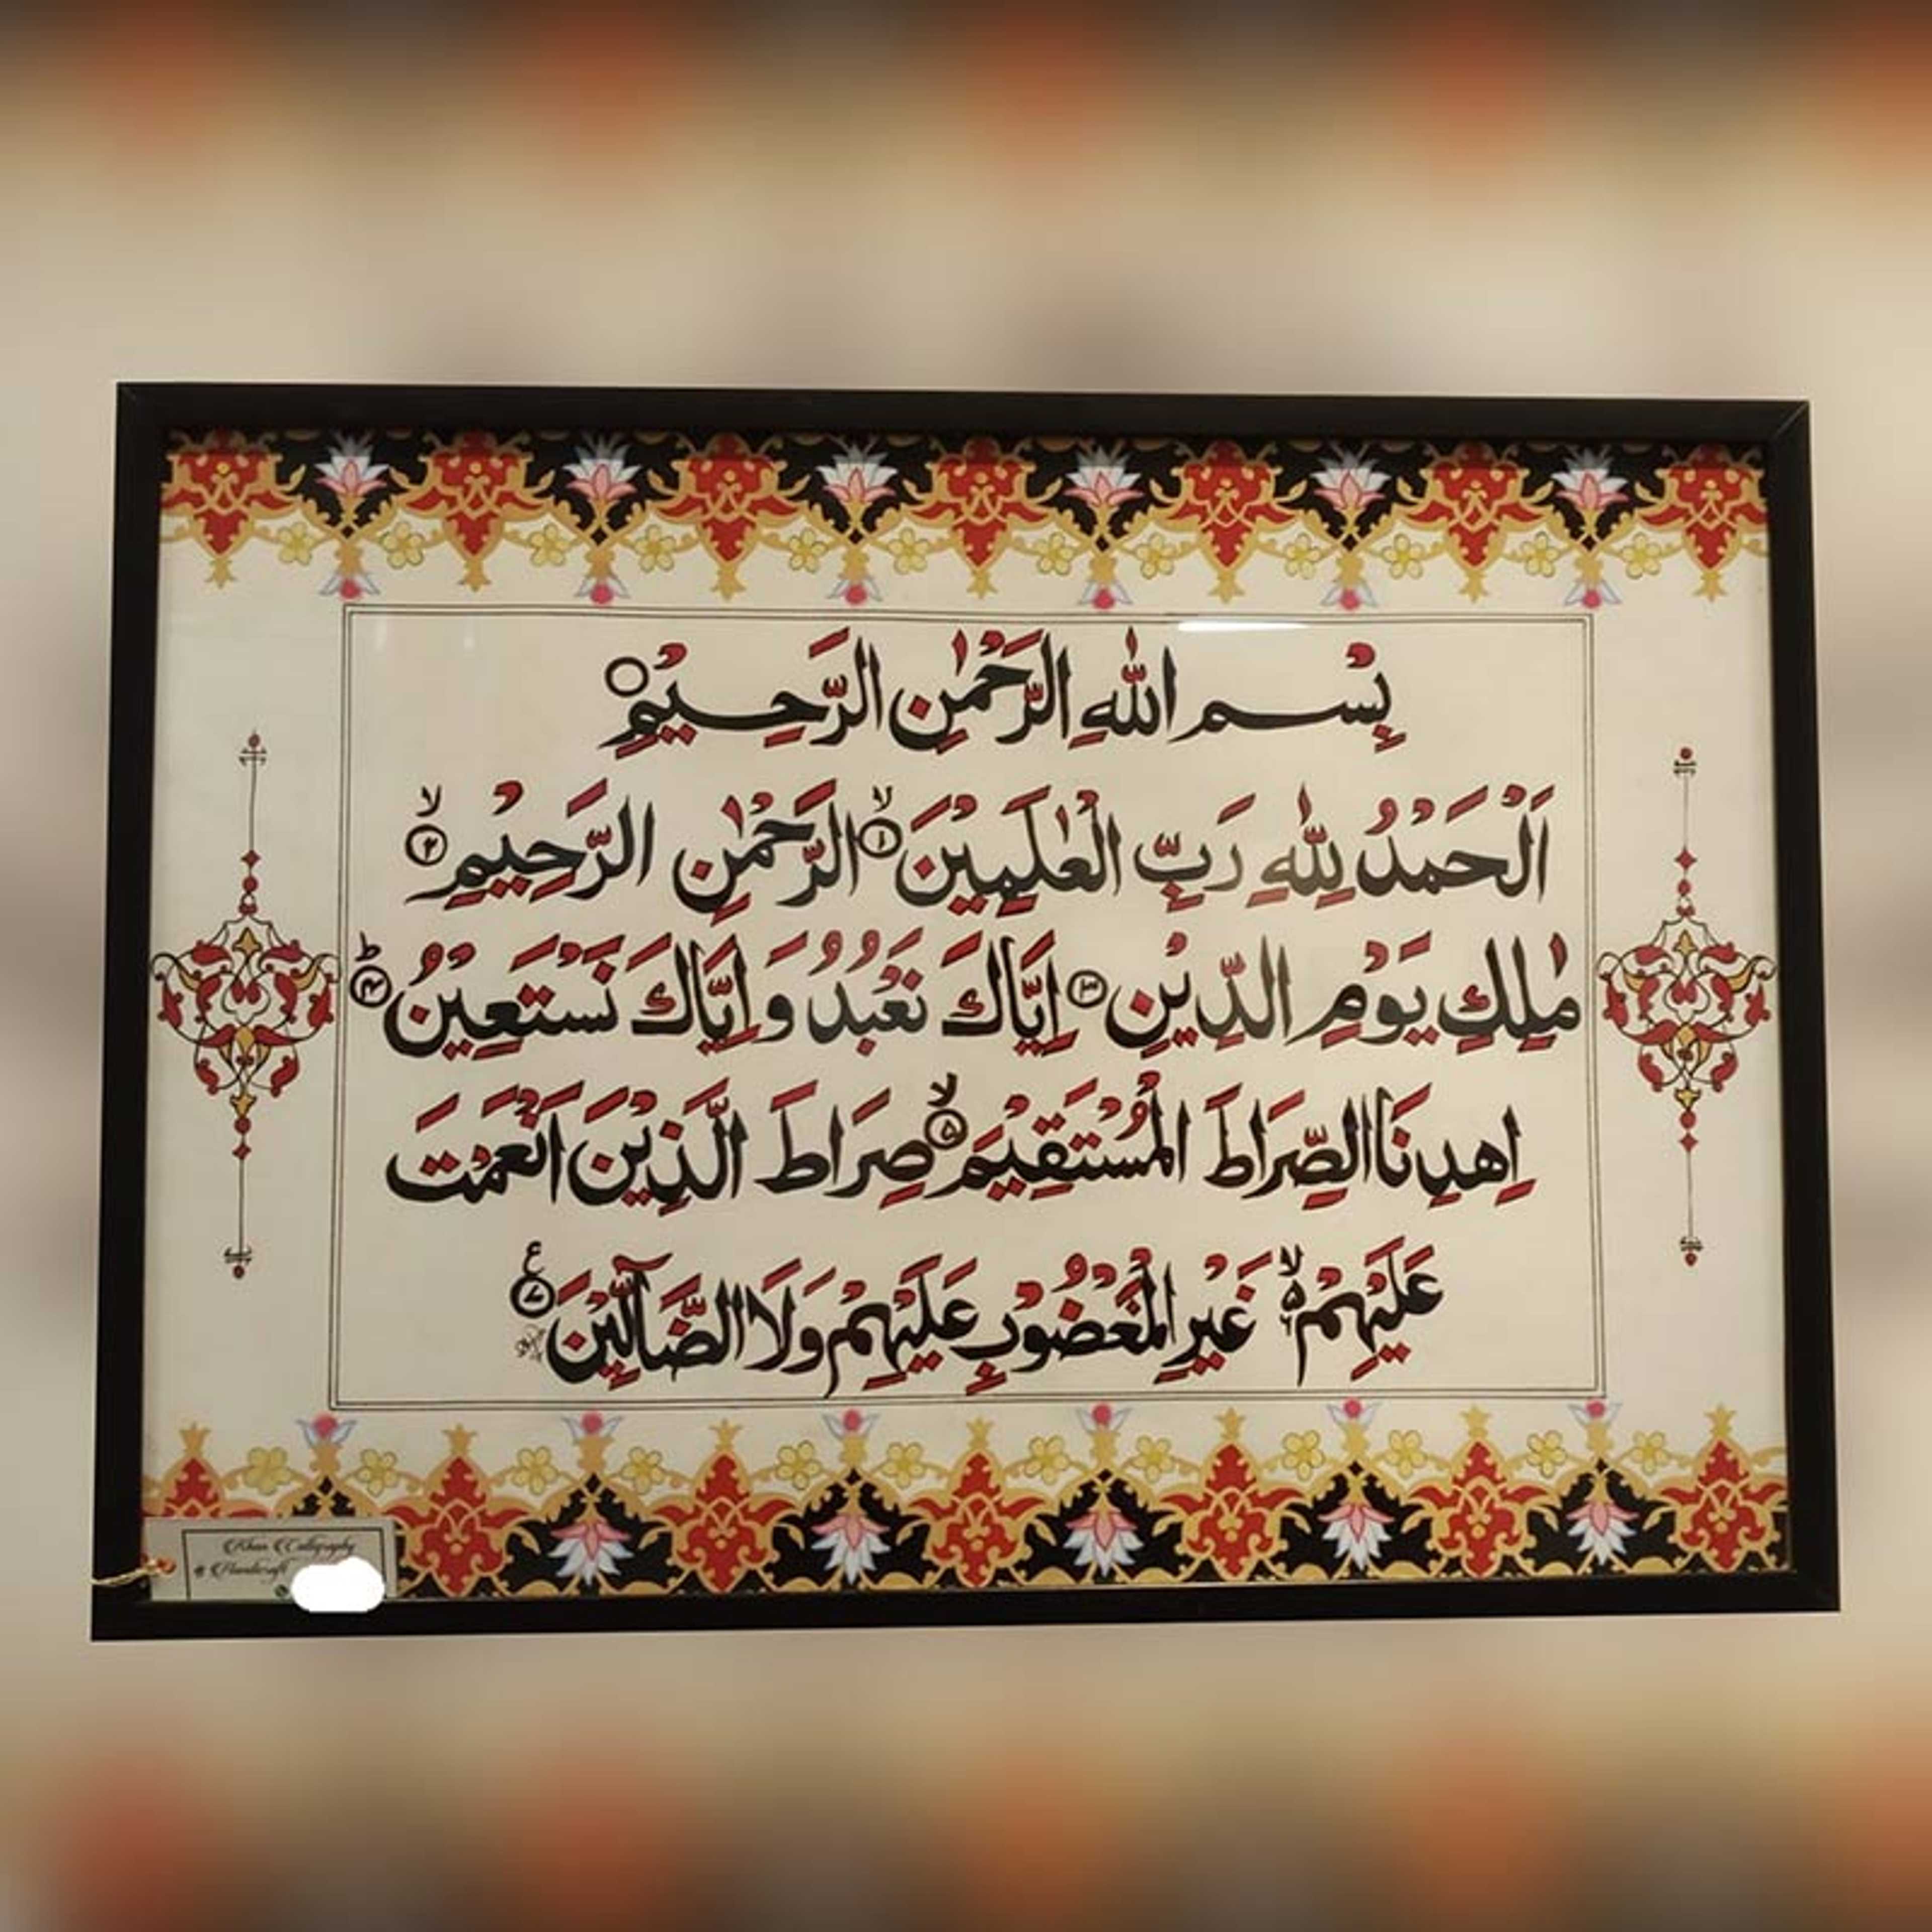 بِسْمِ اللّٰهِ الرَّحْمٰنِ الرَّحِيْمِ ○
اَلْحَمْدُ لِلّٰهِ رَبِّ الْعٰلَمِيْنَ ۙ﴿۱﴾ الرَّحْمٰنِ الرَّحِيْمِ ۙ﴿۲﴾
مٰلِكِ يَوْمِ الدِّيْنِ ﴿۳﴾ اِيَّاكَ نَعْبُدُ وَاِيَّاكَ نَسْتَعِيْنُ ؕ﴿۴﴾
اِهْدِنَا الصِّرَاطَ الْمُسْتَقِيْمَ ۙ﴿۵﴾ صِرَاطَ الَّذِيْنَ اَنْعَمْتَ
عَلَيْهِمْ ۙ۬ۦ غَيْرِ الْمَغْضُوْبِ عَلَيْهِمْ وَلَا الضَّآلِّيْنَ ﴿۷﴾ ع
Khan Calligraphy
& Handicraft